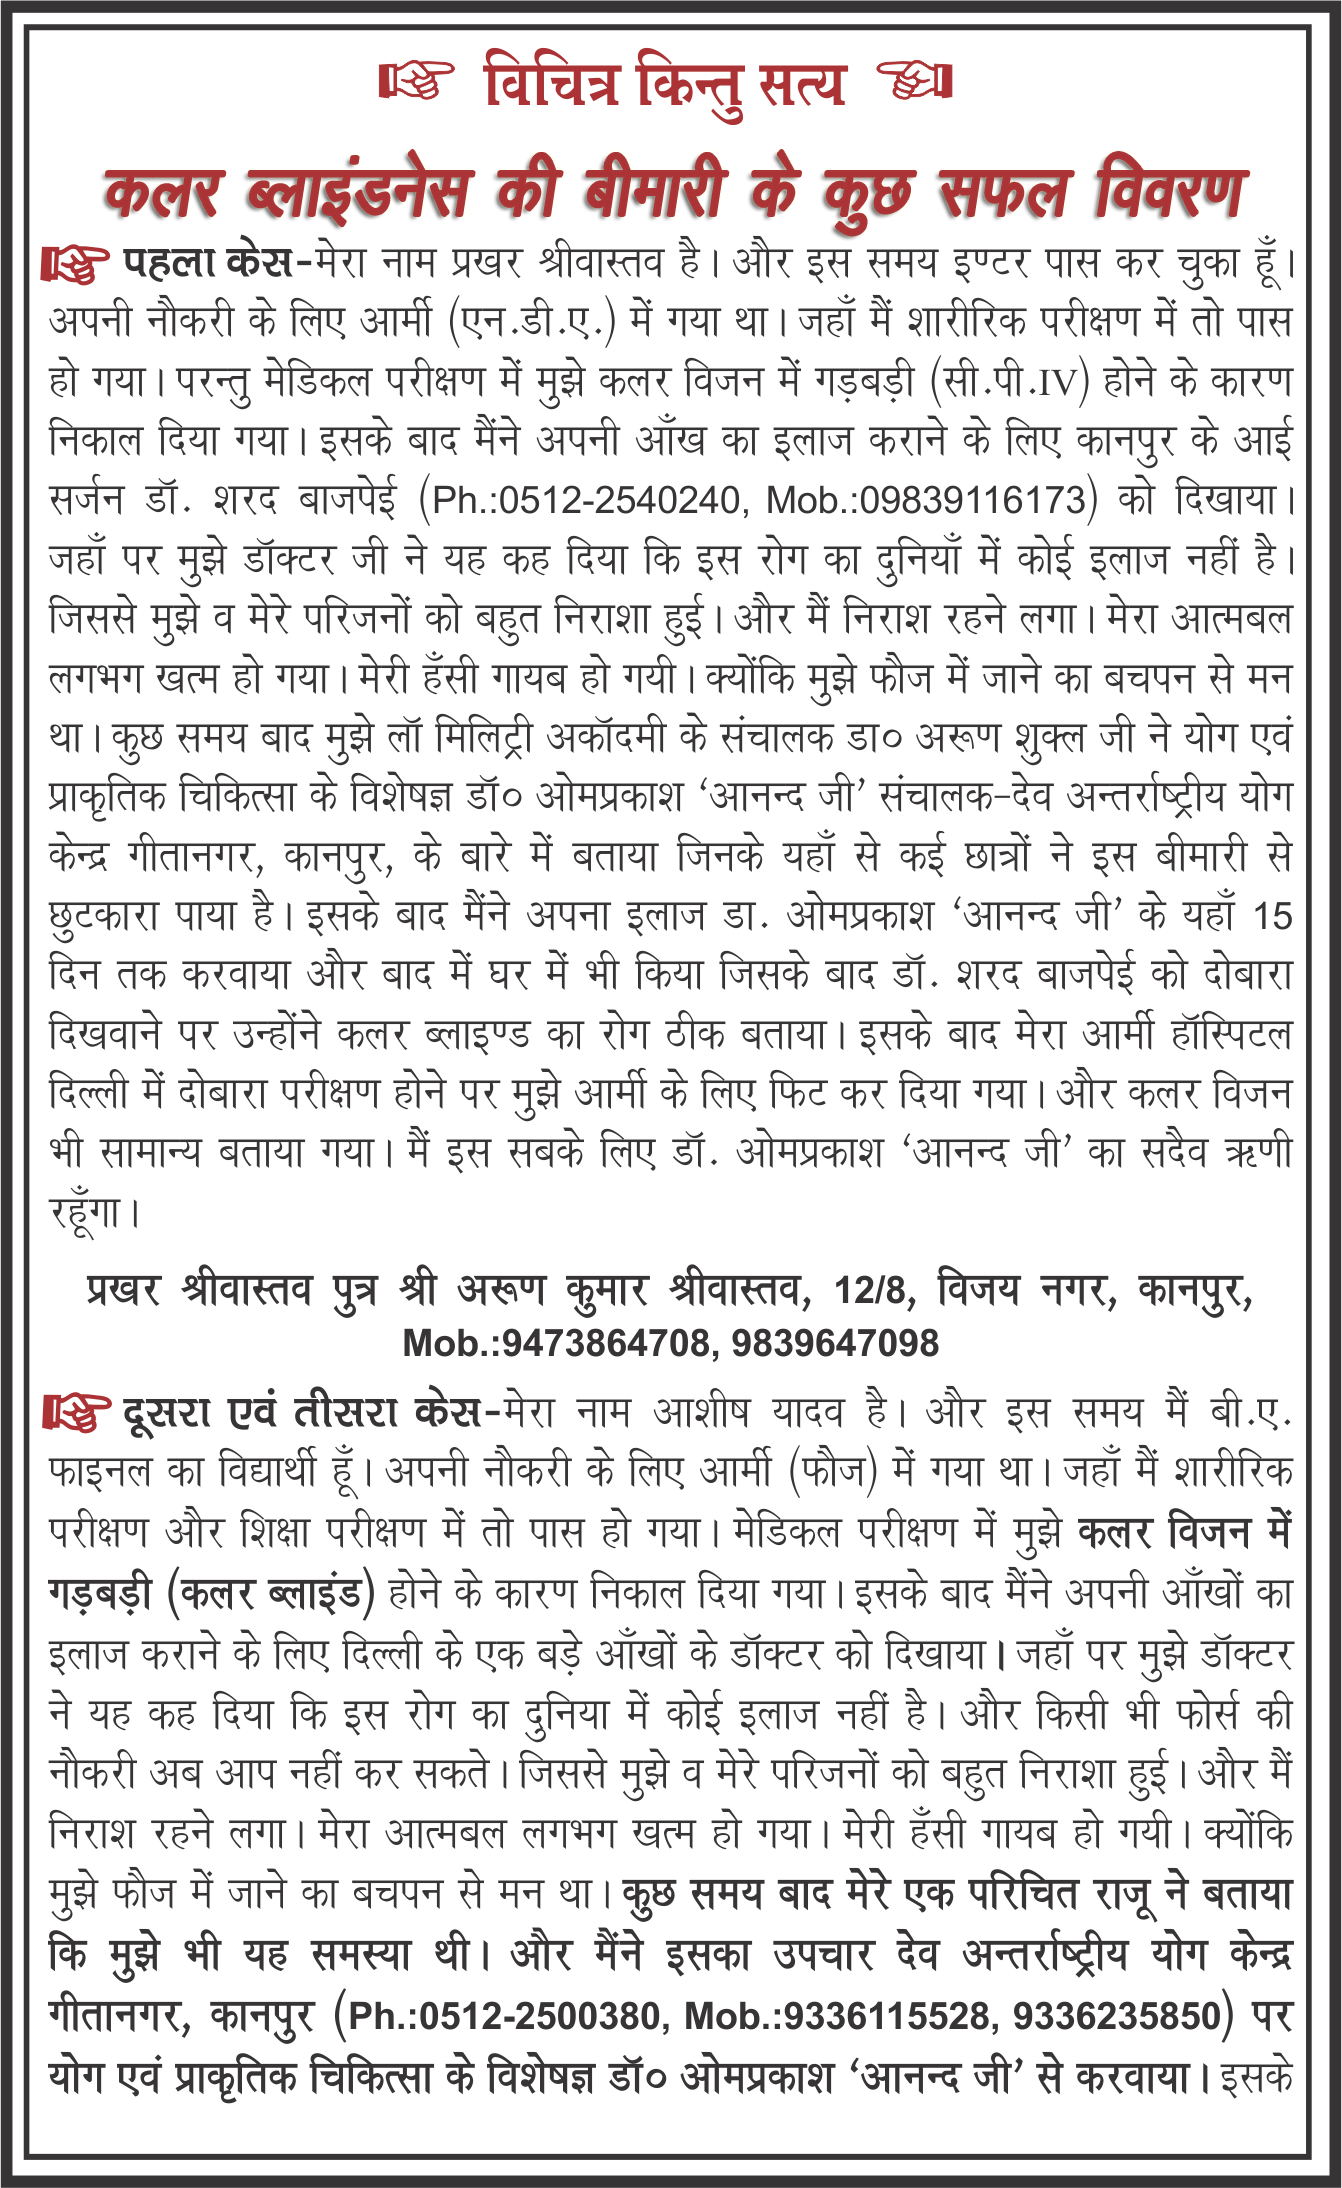 विचित्र किन्तु सत्य
कलर ब्लाइंडनेस की बीमारी के कुछ सफल विवरण
पहला केस-मेरा नाम प्रखर श्रीवास्तव है। और इस समय इण्टर पास कर चुका हूँ।
अपनी नौकरी के लिए आर्मी (एन.डी.ए.) में गया था। जहाँ मैं शारीरिक परीक्षण में तो पास
हो गया। परन्तु मेडिकल परीक्षण में मुझे कलर विजन में गड़बड़ी (सी.पी.IV) होने के कारण
निकाल दिया गया। इसके बाद मैंने अपनी आँख का इलाज कराने के लिए कानपुर के आई
सर्जन डॉ. शरद बाजपेई (Ph.:0512-2540240, Mob.:09839116173) को दिखाया।
जहाँ पर मुझे डॉक्टर जी ने यह कह दिया कि इस रोग का दुनियाँ में कोई इलाज नहीं है।
जिससे मुझे व मेरे परिजनों को बहुत निराशा हुई। और मैं निराश रहने लगा। मेरा आत्मबल
लगभग खत्म हो गया। मेरी हँसी गायब हो गयी। क्योंकि मुझे फौज में जाने का बचपन से मन
था। कुछ समय बाद मुझे लॉ मिलिट्री अकॉदमी के संचालक डा० अरूण शुक्ल जी ने योग एवं
प्राकृतिक चिकित्सा के विशेषज्ञ डॉ० ओमप्रकाश ‘आनन्द जी’ संचालक-देव अन्तर्राष्ट्रीय योग
केन्द्र गीतानगर, कानपुर, के बारे में बताया जिनके यहाँ से कई छात्रों ने इस बीमारी से
छुटकारा पाया है। इसके बाद मैंने अपना इलाज डा. ओमप्रकाश ‘आनन्द जी’ के यहाँ 15
दिन तक करवाया और बाद में घर में भी किया जिसके बाद डॉ. शरद बाजपेई को दोबारा
दिखवाने पर उन्होंने कलर ब्लाइण्ड का रोग ठीक बताया। इसके बाद मेरा आर्मी हॉस्पिटल
दिल्ली में दोबारा परीक्षण होने पर मुझे आर्मी के लिए फिट कर दिया गया। और कलर विजन
भी सामान्य बताया गया। मैं इस सबके लिए डॉ. ओमप्रकाश ‘आनन्द जी’ का सदैव ऋणी
रहूँगा।
प्रखर श्रीवास्तव पुत्र श्री अरूण कुमार श्रीवास्तव, 12/8, विजय नगर, कानपुर,
Mob.:9473864708, 9839647098
दूसरा एवं तीसरा केस-मेरा नाम आशीष यादव है। और इस समय मैं बी.ए.
फाइनल का विद्यार्थी हूँ। अपनी नौकरी के लिए आर्मी (फौज) में गया था। जहाँ मैं शारीरिक
परीक्षण और शिक्षा परीक्षण में तो पास हो गया। मेडिकल परीक्षण में मुझे कलर विजन में
गड़बड़ी (कलर ब्लाइंड) होने के कारण निकाल दिया गया। इसके बाद मैंने अपनी आँखों का
इलाज कराने के लिए दिल्ली के एक बड़े आँखों के डॉक्टर को दिखाया। जहाँ पर मुझे डॉक्टर
ने यह कह दिया कि इस रोग का दुनिया में कोई इलाज नहीं है। और किसी भी फोर्स की
नौकरी अब आप नहीं कर सकते। जिससे मुझे व मेरे परिजनों को बहुत निराशा हुई। और मैं
निराश रहने लगा। मेरा आत्मबल लगभग खत्म हो गया। मेरी हँसी गायब हो गयी। क्योंकि
मुझे फौज में जाने का बचपन से मन था। कुछ समय बाद मेरे एक परिचित राजू ने बताया
कि मुझे भी यह समस्या थी। और मैंने इसका उपचार देव अन्तर्राष्ट्रीय योग केन्द्र
गीतानगर, कानपुर (Ph.:0512-2500380, Mob.:9336115528, 9336235850) पर
योग एवं प्राकृतिक चिकित्सा के विशेषज्ञ डॉ० ओमप्रकाश ‘आनन्द जी’ से करवाया। इसके